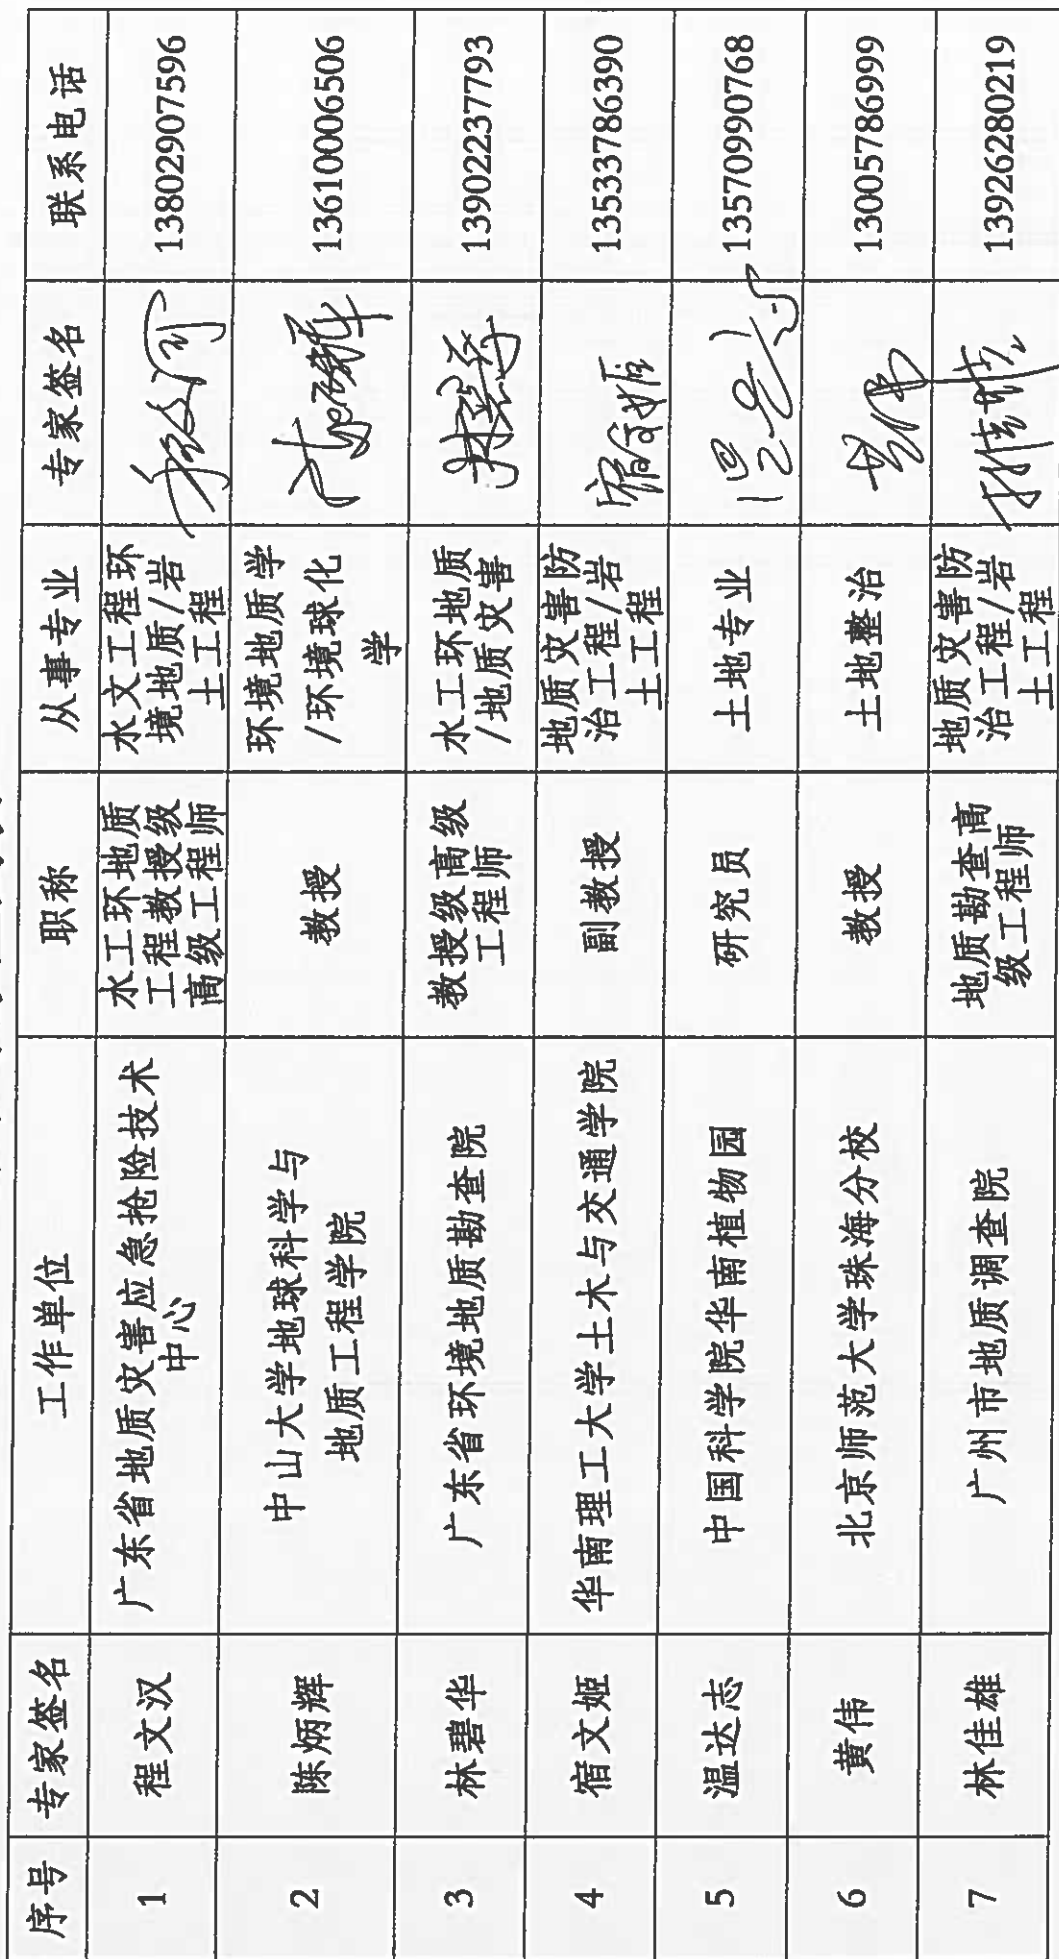 序号 专家签名 工作单位 职称 从事专业 专家签名 联系电话
1 程文汉 广东省地质灾害应急抢险技术
中心
水工环地质
工程教授级
高级工程师
水文工程环
境地质/岩
土工程
13802907596
2 陈炳辉 中山大学地球科学与
地质工程学院
教授
环境地质学
/环境球化
学
13610006506
3 林碧华 广东省环境地质勘查院
教授级高级
工程师
水工环地质
/地质灾害
13902237793
4 宿文姬 华南理工大学土木与交通学院
副教授
地质灾害防
治工程/岩
土工程
13533786390
5 温达志 中国科学院华南植物园 研究员 土地专业 13570990768
6 黄伟 北京师范大学珠海分校 教授 土地整治 13005786999
7 林佳雄 广州市地质调查院
地质勘查高
级工程师
地质灾害防
治工程/岩
土工程
13926280219